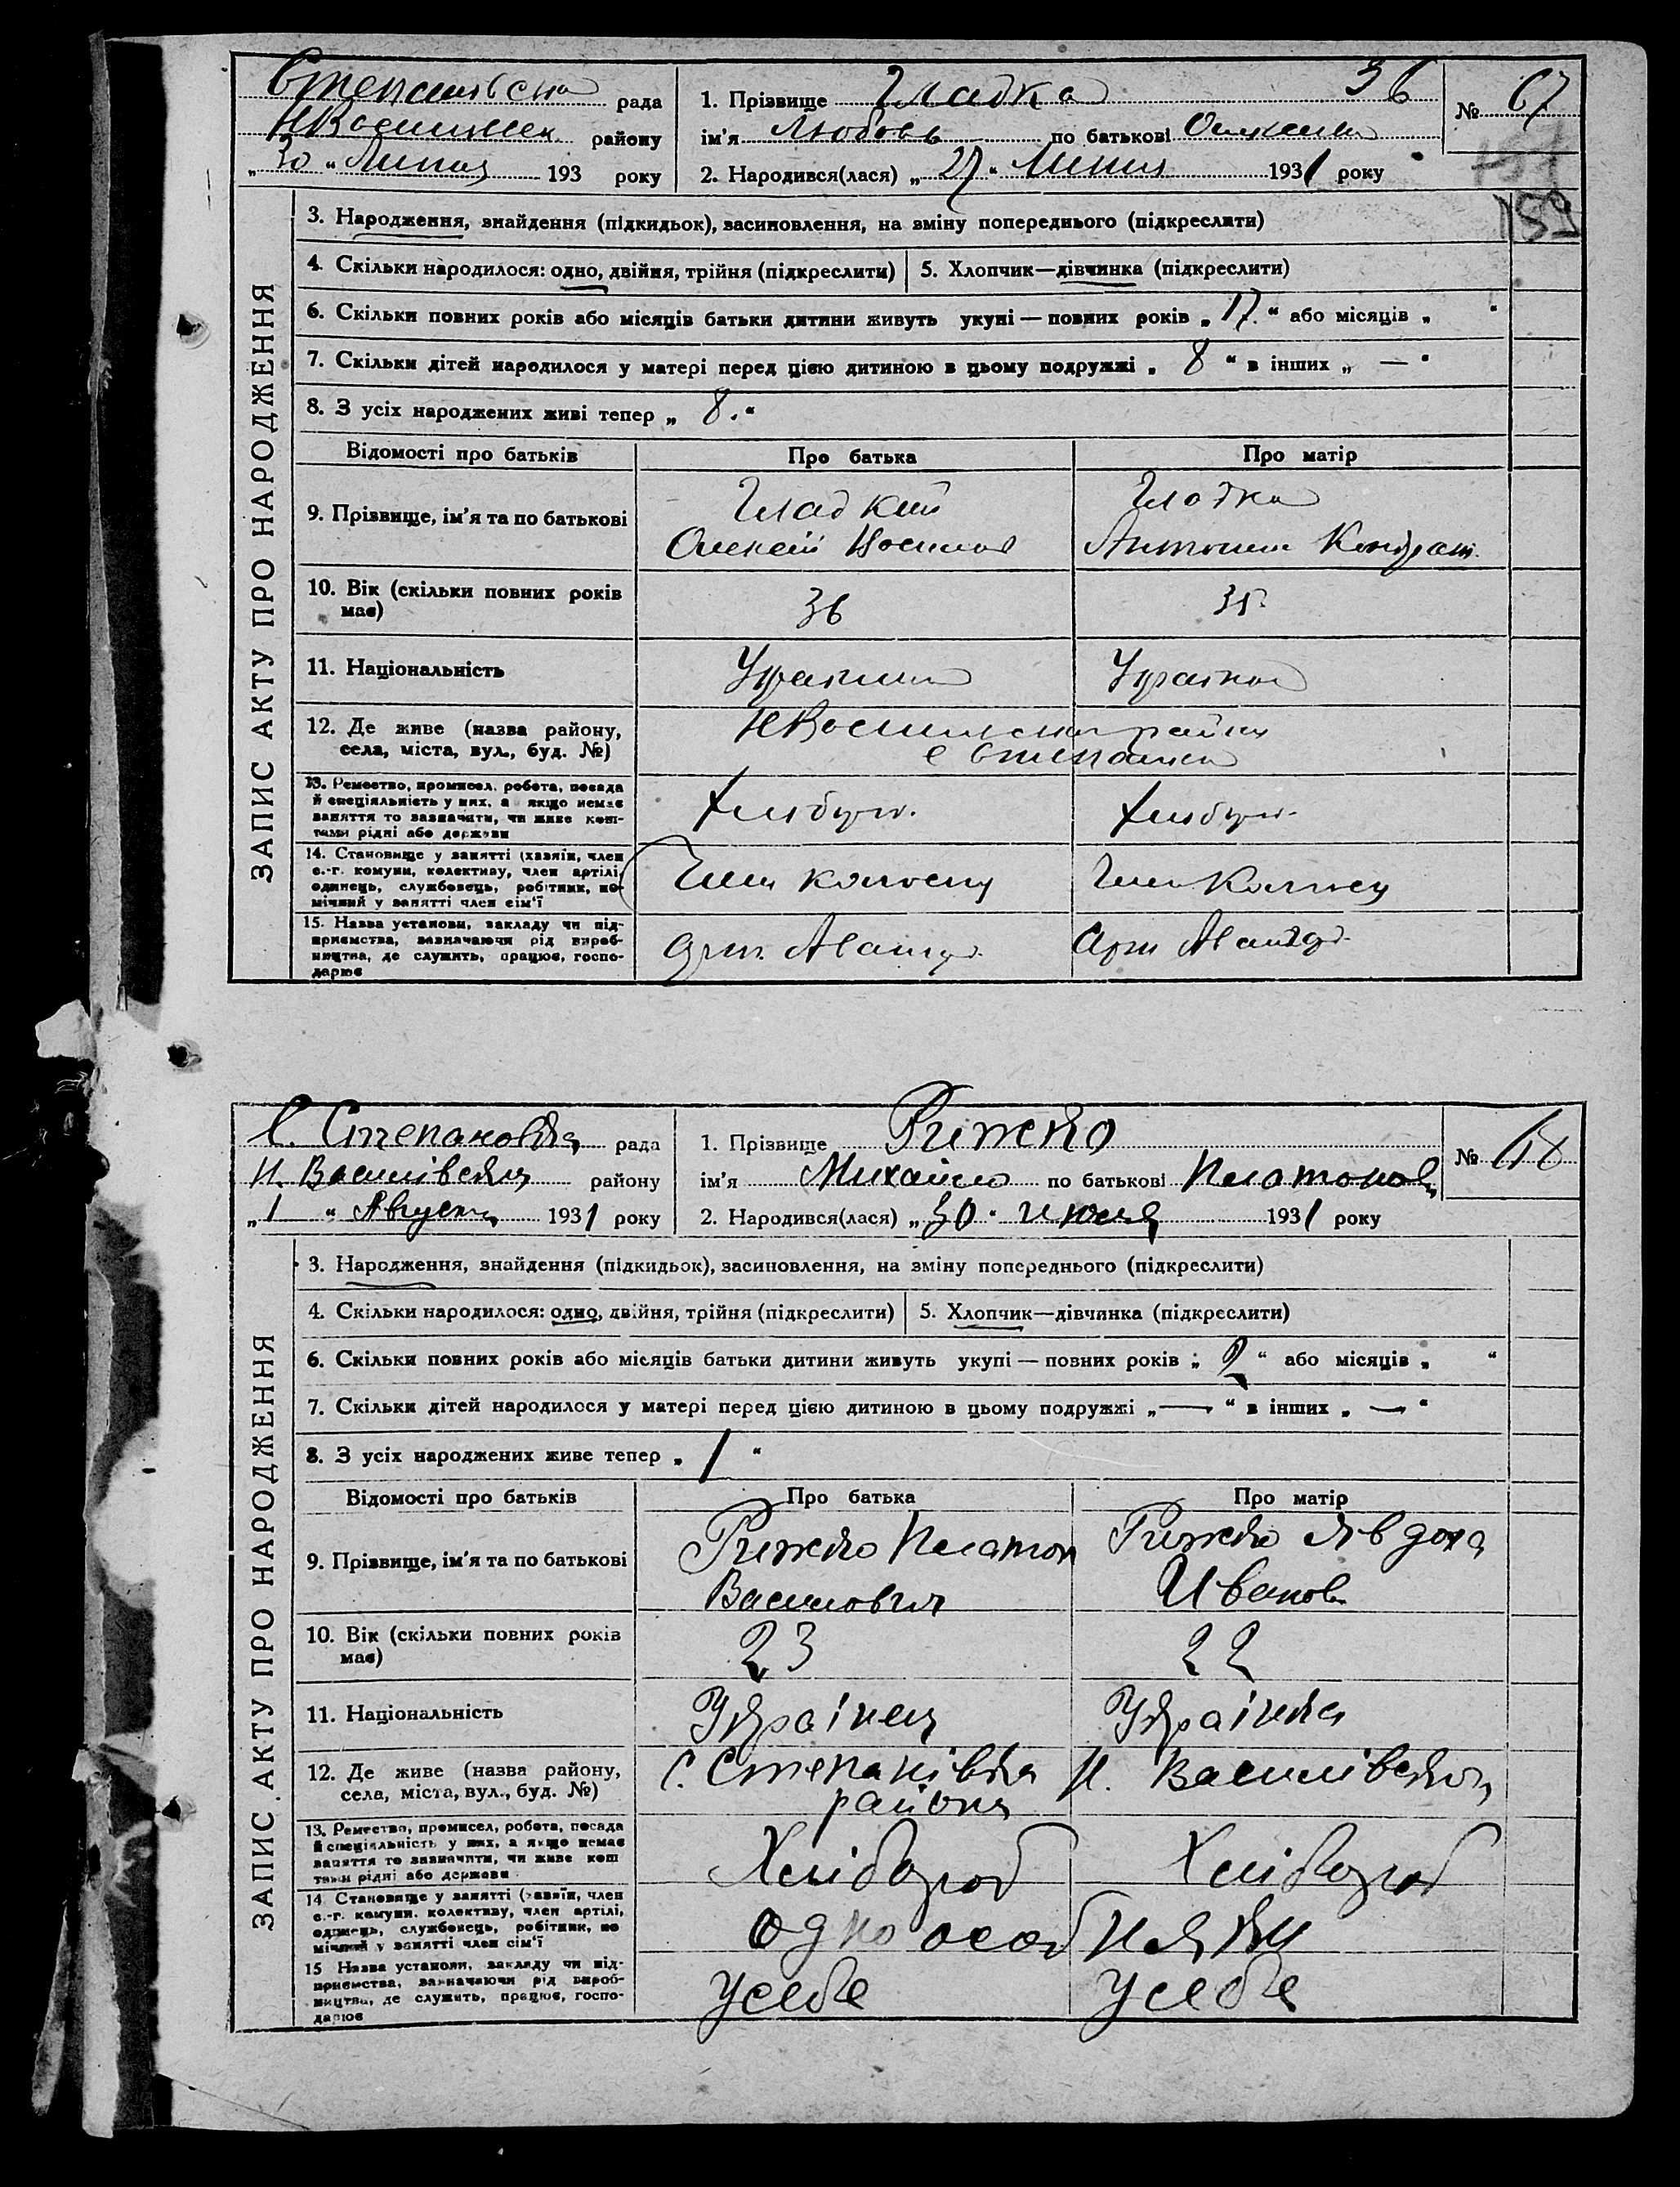 Степанівська рада
НВасилівськ району
„30“ Липня 193 року
1. Прізвище Гладка 36
ім'я Любовь по батькові
2. Народився(лася) „27“ Липня 1931 року
№ 67
159
ЗАПИС АКТУ ПРО НАРОДЖЕННЯ
3. Народження, знайдення (підкидьок), засиновлення, на зміну попереднього (підкреслити)
4. Скільки народилося: одно, двійня, трійня (підкреслити) 5. Хлопчик—дівчинка (підкреслити)
6. Скільки повних років або місяців батьки дитини живуть укупі — повних років „17“ або місяців „ “
7. Скільки дітей народилося у матері перед цією дитиною в цьому подружжі „8“ в інших „—“
8. З усіх народжених живі тепер „8.“
Відомості про батьків Про батька Про матір
9. Прізвище, ім'я та по батькові
Гладкий Гладка
Олексій Антонина Кондрат.
10. Вік (скільки повних років має) 36 35
11. Національність
12. Де живе (назва району, села, міста, вул., буд. №)
НВасилівськ району
с Степанівка
13. Ремество, промисел, робота, посада й спеціяльність у них, а якщо немає заняття то зазначити, чи живе коштами рідні або держави
Хлібороб. Хлібороб.
14. Становище у занятті (хазяїн, член с.-г. комуни, колективу, член артілі, одинець, службовець, робітник, помічний у занятті член сім'ї
Член колгоспу Член Колгоспу
15. Назва установи, закладу чи підприємства, зазначаючи рід виробництва, де служить, працює, господарює
Арт. Авангард. Арт Авангард.
С. Степановка рада
Н. Василівська району
„1“ Августа 1931 року
1. Прізвище Рижко
ім'я Михайло по батькові Платонов
2. Народився(лася) „30“ июля 1931 року
№ 68
ЗАПИС АКТУ ПРО НАРОДЖЕННЯ
3. Народження, знайдення (підкидьок), засиновлення, на зміну попереднього (підкреслити)
4. Скільки народилося: одно, двійня, трійня (підкреслити) 5. Хлопчик—дівчинка (підкреслити)
6. Скільки повних років або місяців батьки дитини живуть укупі — повних років „2“ або місяців „ “
7. Скільки дітей народилося у матері перед цією дитиною в цьому подружжі „—“ в інших „—“
8. З усіх народжених живе тепер „1“
Відомості про батьків Про батька Про матір
9. Прізвище, ім'я та по батькові
Рижко Платон Рижко Явдоха
Василович Иванов
10. Вік (скільки повних років має) 23 22
11. Національність Українец Українка
12. Де живе (назва району, села, міста, вул., буд. №)
С. Степанівка Н. Василівського
района
13. Ремество, промисел, робота, посада й спеціяльність у них, а якщо немає заняття то зазначити, чи живе коштами рідні або держави
Хлібороб Хлібороб
14. Становище у занятті (хазяїн, член с.-г. комуни, колективу, член артілі, одинець, службовець, робітник, помічний у занятті член сім'ї
одноособняки
15 Назва установи, закладу чи підприємства, зазначаючи рід виробництва, де служить, працює, господарює
Усебе Усебе